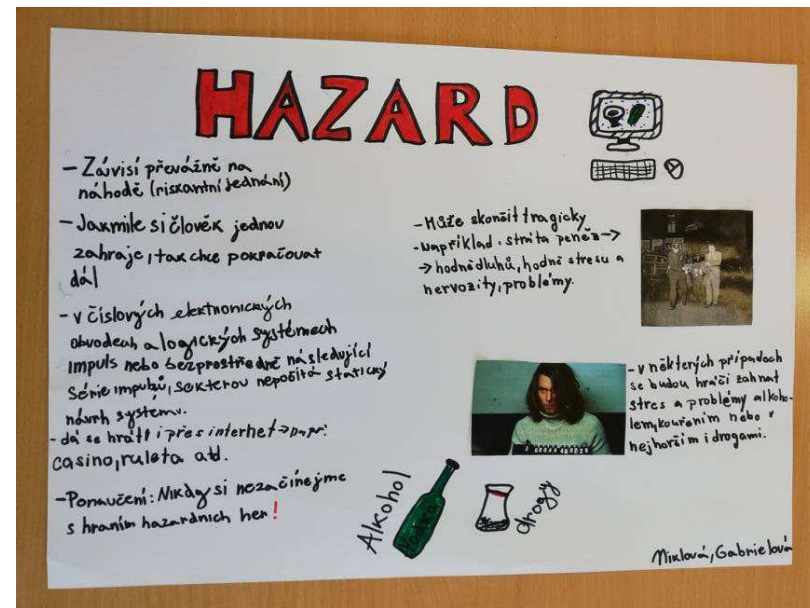 HAZARD
- Závisí převážně na
náhodě (riskantní jednání)
- Jakmile si člověk jednou
zahraje, tak chce pokračovat
dál
- v číslových elektronických
obvodech a logických systémech
impuls nebo bezprostředně následující
série impulsů, se kterou nepočítá statický
návrh systému.
- dá se hrát i přes internet → např:
casino, ruleta atd.
- Ponaučení: Nikdy si nezačínejme
s hraním hazardních her!
- Může skončit tragicky
- Například: ztráta peněz →
→ hodně dluhů, hodně stresu a
nervozity, problémy.
- v některých případech
se budou hráči zahnat
stres a problémy alkoho-
lem, kouřením nebo v
nejhorším i drogami.
Alkohol
Vodka
drogy
Niklová, Gabrielová